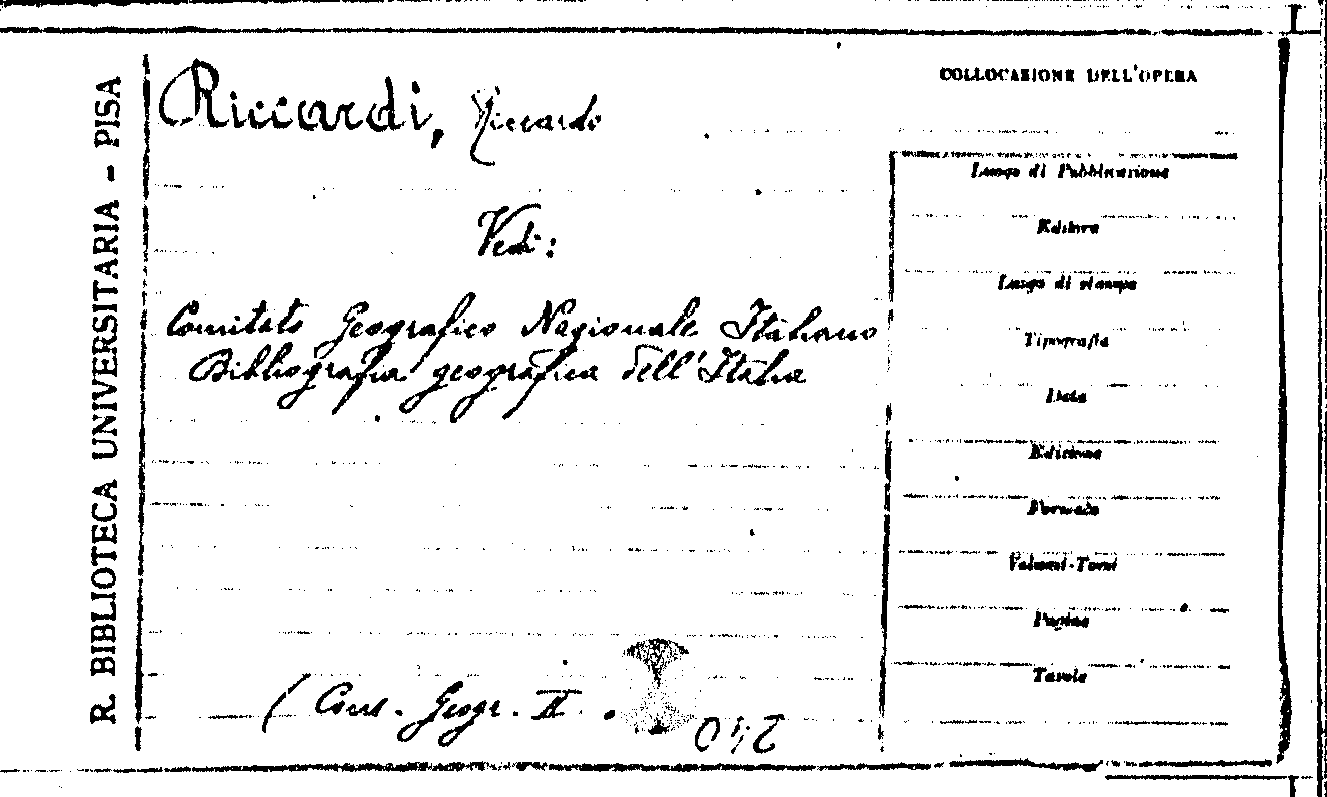 R. BIBLIOTECA UNIVERSITARIA - PISA
Riccardi, Riccardo
Vedi:
Comitato Geografico Nazionale Italiano
Bibliografia geografica dell'Italia
( Com. Geogr. II.
COLLOCAZIONE DELL'OPERA
Luogo di Pubblicazione
Editore
Luogo di stampa
Tipografia
Data
Edizione
Formato
Volumi-Tomi
Pagine
Tavole